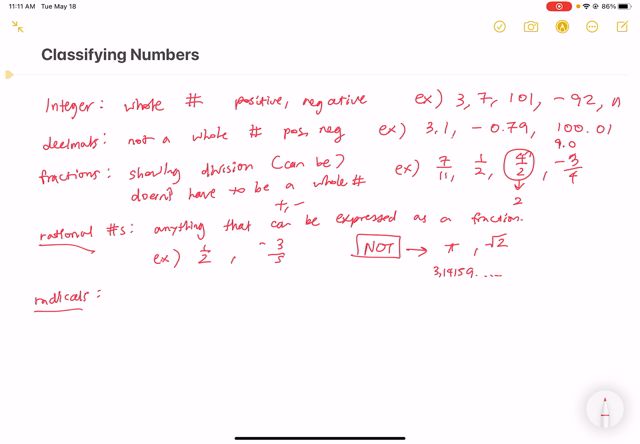 11:11 AM Tue May 18
86%
Classifying Numbers
Integer: whole # positive, negative ex) 3, 7, 101, -92, n
decimals: not a whole # pos, neg ex) 3.1, -0.79, 100.01
9.0
fractions: showing division (can be) ex) 7/11, 1/2, 4/2, -3/4
doesn't have to be a whole #
2
+, -
rational #s: anything that can be expressed as a fraction.
ex) 1/2, -3/5 NOT → π, √2
3.14159.....
radicals: